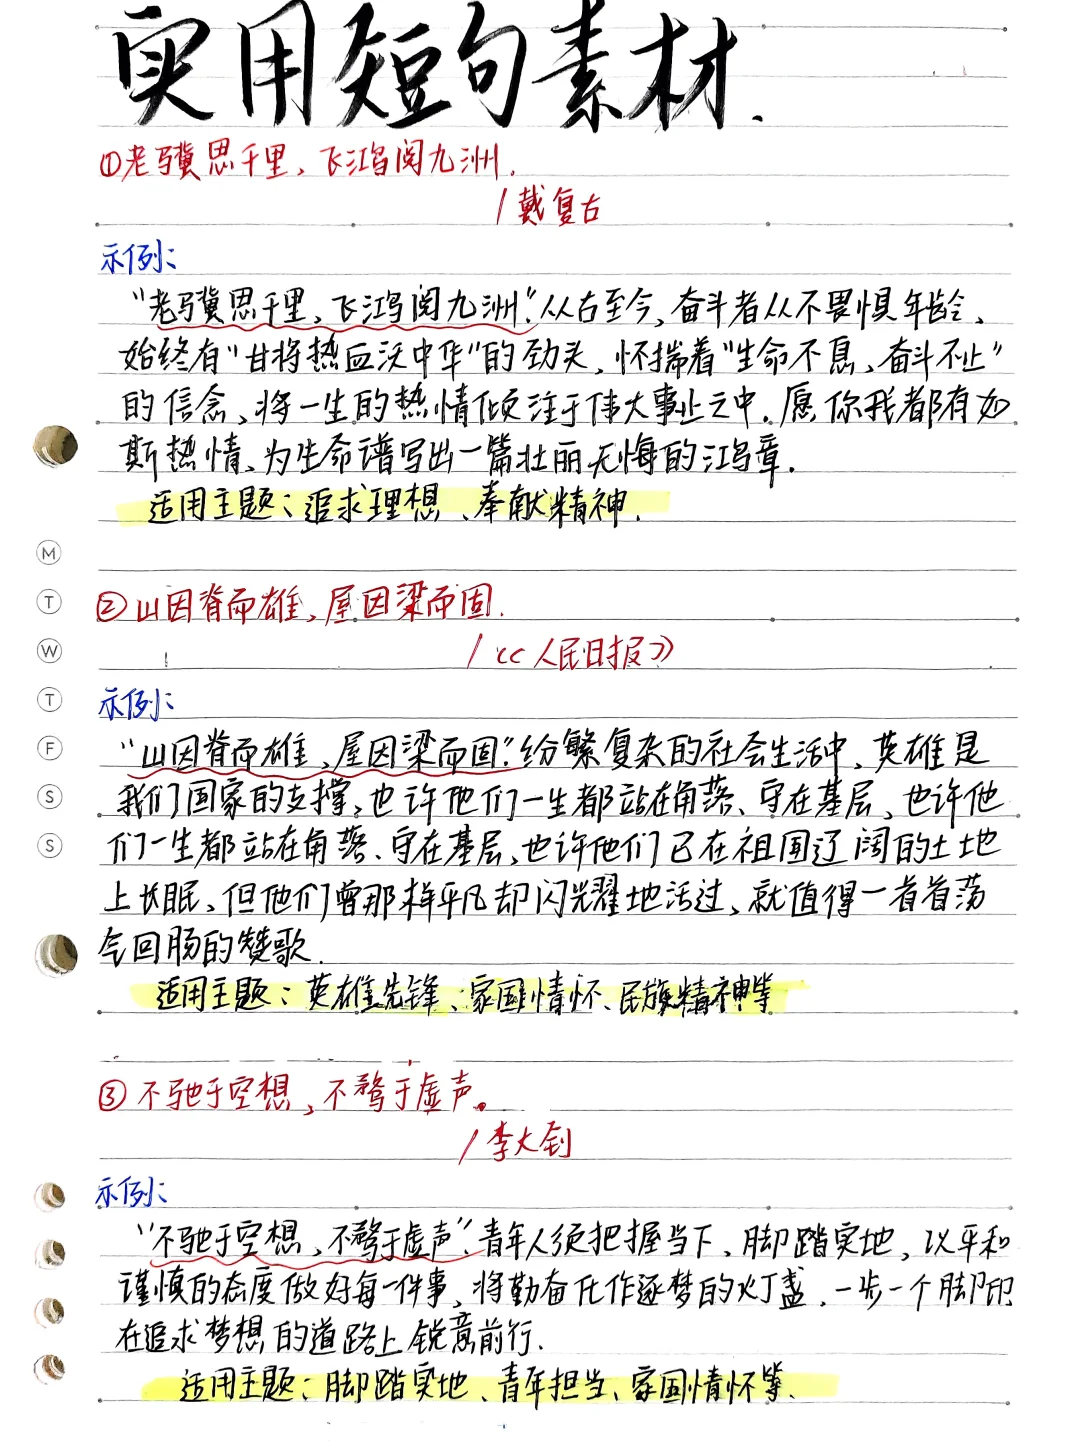 实用短句素材.
①老骥思千里,飞鸿阅九洲.
/戴复古
示例:
"老骥思千里,飞鸿阅九洲."从古至今,奋斗者从不畏惧年龄、
始终有"甘将热血沃中华"的劲头、怀揣着"生命不息、奋斗不止"
的信念、将一生的热情倾注于伟大事业之中.愿你我都有如
斯热情、为生命谱写出一篇壮丽无悔的鸿章.
适用主题:追求理想、奉献精神.
②山因脊而雄,屋因梁而固.
/《人民日报》
示例:
"山因脊而雄,屋因梁而固."纷繁复杂的社会生活中,英雄是
我们国家的支撑,也许他们一生都站在角落、守在基层,也许他
们一生都站在角落、守在基层,也许他们已在祖国辽阔的土地
上长眠、但他们曾那样平凡却闪光耀地活过、就值得一首首荡
气回肠的赞歌.
适用主题:英雄先锋、家国情怀、民族精神等
M
T
W
T
F
S
S
③不驰于空想,不骛于虚声。
/李大钊
示例:
"不驰于空想,不骛于虚声".青年人须把握当下、脚踏实地,以平和
谨慎的态度做好每一件事,将勤奋化作逐梦的灯盏.一步一个脚印
在追求梦想的道路上锐意前行.
适用主题:脚踏实地、青年担当、家国情怀等.